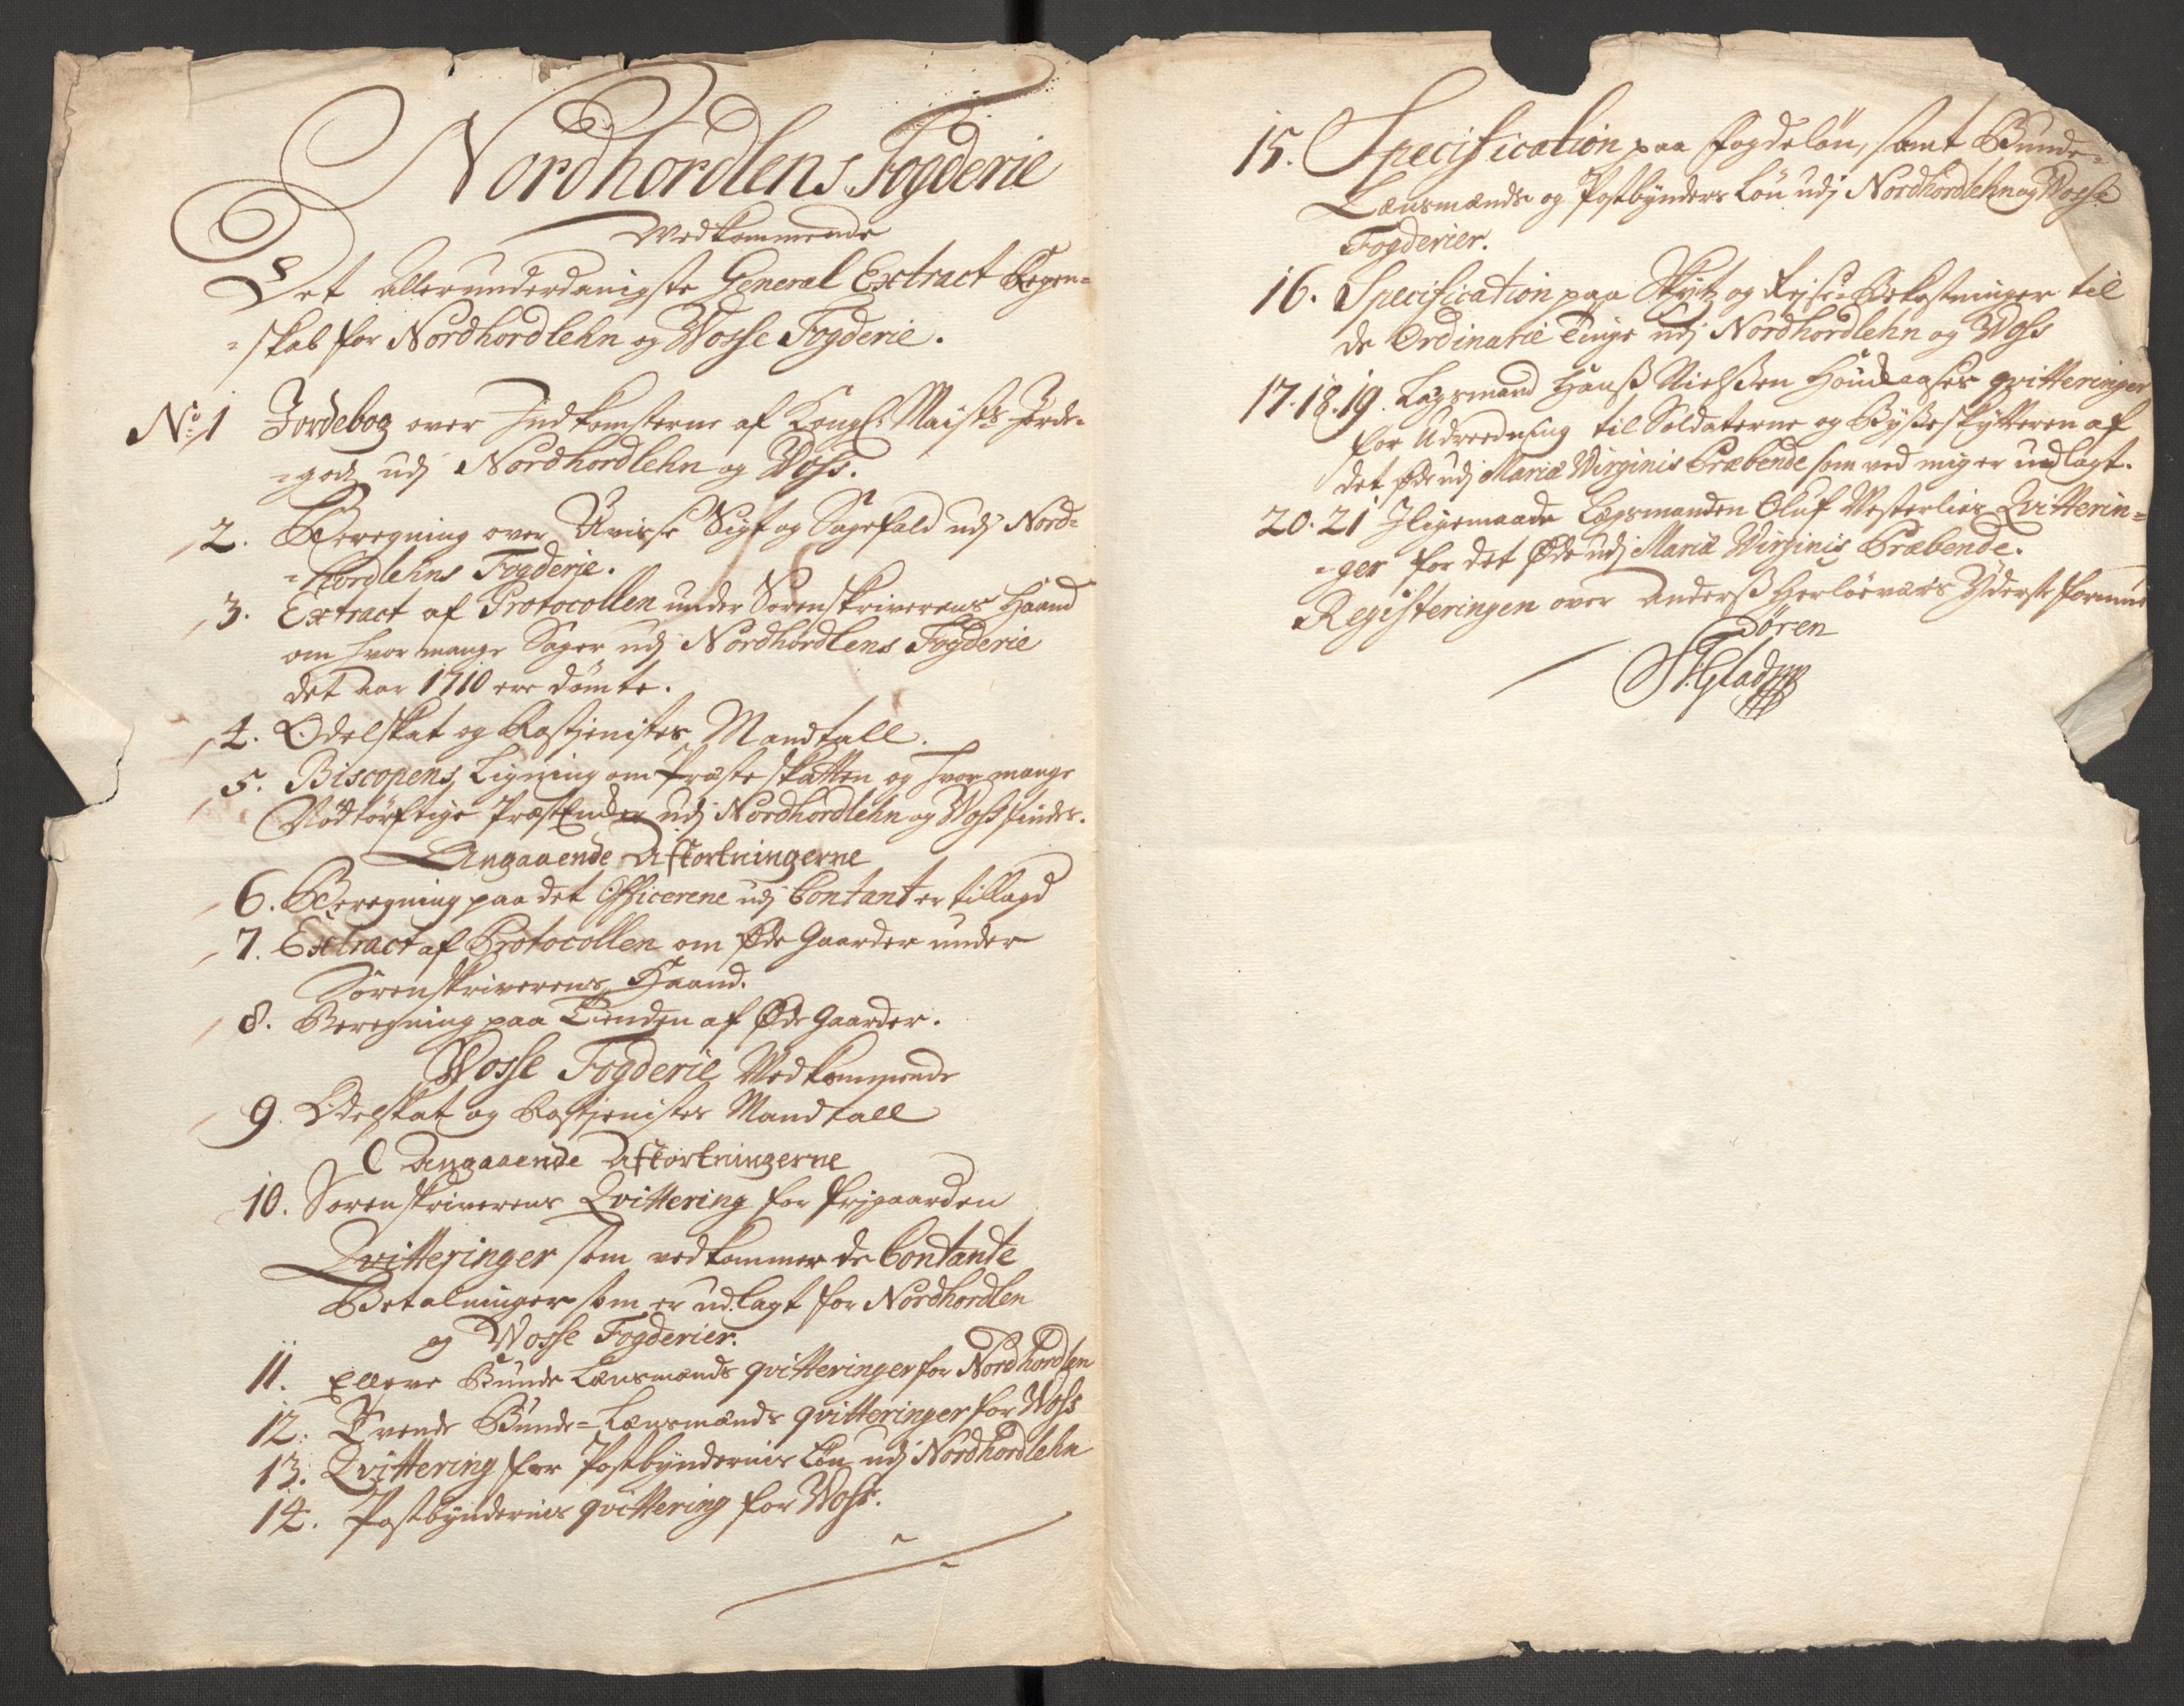 Nordhordlens Fogderie
Vedkommende
Det allerunderdanigste General Extract Regen-
=skab for Nordhordlehn og Wosse Fogderie.
No. 1 Jordebog over Indkomsterne af Kongl. Maists Jorde-
=gods udj Nordhordlehn og Woss.
2. Beregning over Uvisse Sigt og Sagefald udj Nord=
=hordlehns Fogderie.
3. Extract af Protocollen under Sorenskriverens Haand
om hvor mange Sager udj Nordhordlens Fogderie
det aar 1710 ere dömte.
4. Odelskat og Rostjenistes Mandtall.
5. Biscopens Ligning om Præste skatten og hvor mange
Nödtörftige Præst Encker udj Nordhordlehn og Woss findes.
Angaaende Afkortningerne
6. Beregning paa det Officerene udj Contant er tillagd
7. Extract af Protocollen om Øde Gaarder under
Sorenskriverens Haand.
8. Beregning paa Tienden af Øde Gaarder.
Wosse Fogderie Vedkommende
9. Odelskat og Rostjenistes Mandtall
Angaaende Afkortningerne
10. Sorenskriverens Qvittering for frjgaarden
Qvitteringer som vedkommer de Contante
Betalninger som er udlagt for Nordhordlen
og Wosse Fogderier.
11. Elleve Bunde Lænsmænds qvitteringer for Nordhordlen
12. Tvende Bunde=Lænsmænds qvitteringer for Woss
13. Qvittering for Postbyndernis Lön udj Nordhordlehn
14. Postbyndernis qvittering for Woss.
15. Specification paa fogdelön, samt Bunde=
Lænsmænds og Postbynders Lön udj Nordhordlehn og Wosse
Fogderier.
16. Specification paa Skytz og Rejse-Bekostninger til
de Ordinarie Tinge udj Nordhordlehn og Woss
17. 18. 19. Lægsmand Hanss Nielssen qvitteringer
for Udreedning til Soldaterne og Bysseskytteren af
det Øde udj Mariæ Virginis Præbende som ved mig er udlagt.
20. 21 Iligemaade Lægsmanden Oluf Westerlies Qvitterin=
=ger for det Øde udj Mariæ Virginis Præbende.
Registeringen over Anderss Herlöeværs Yderste formue
Sören